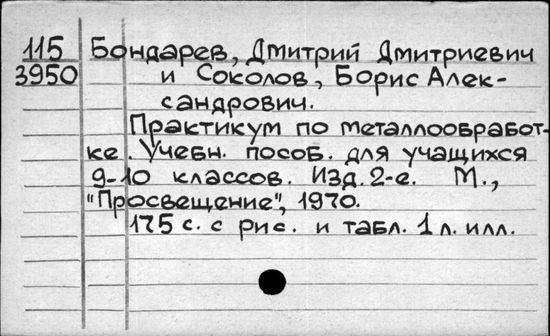 115 Бондарев, Дмитрий Дмитриевич
3950 и Соколов, Борис Алек-
сандрович.
Практикум по металлообработ-
ке. Учебн. пособ. для учащихся
9-10 классов. Изд. 2-е. М.,
"Просвещение", 1970.
175 с. с рис. и табл. 1 л. илл.